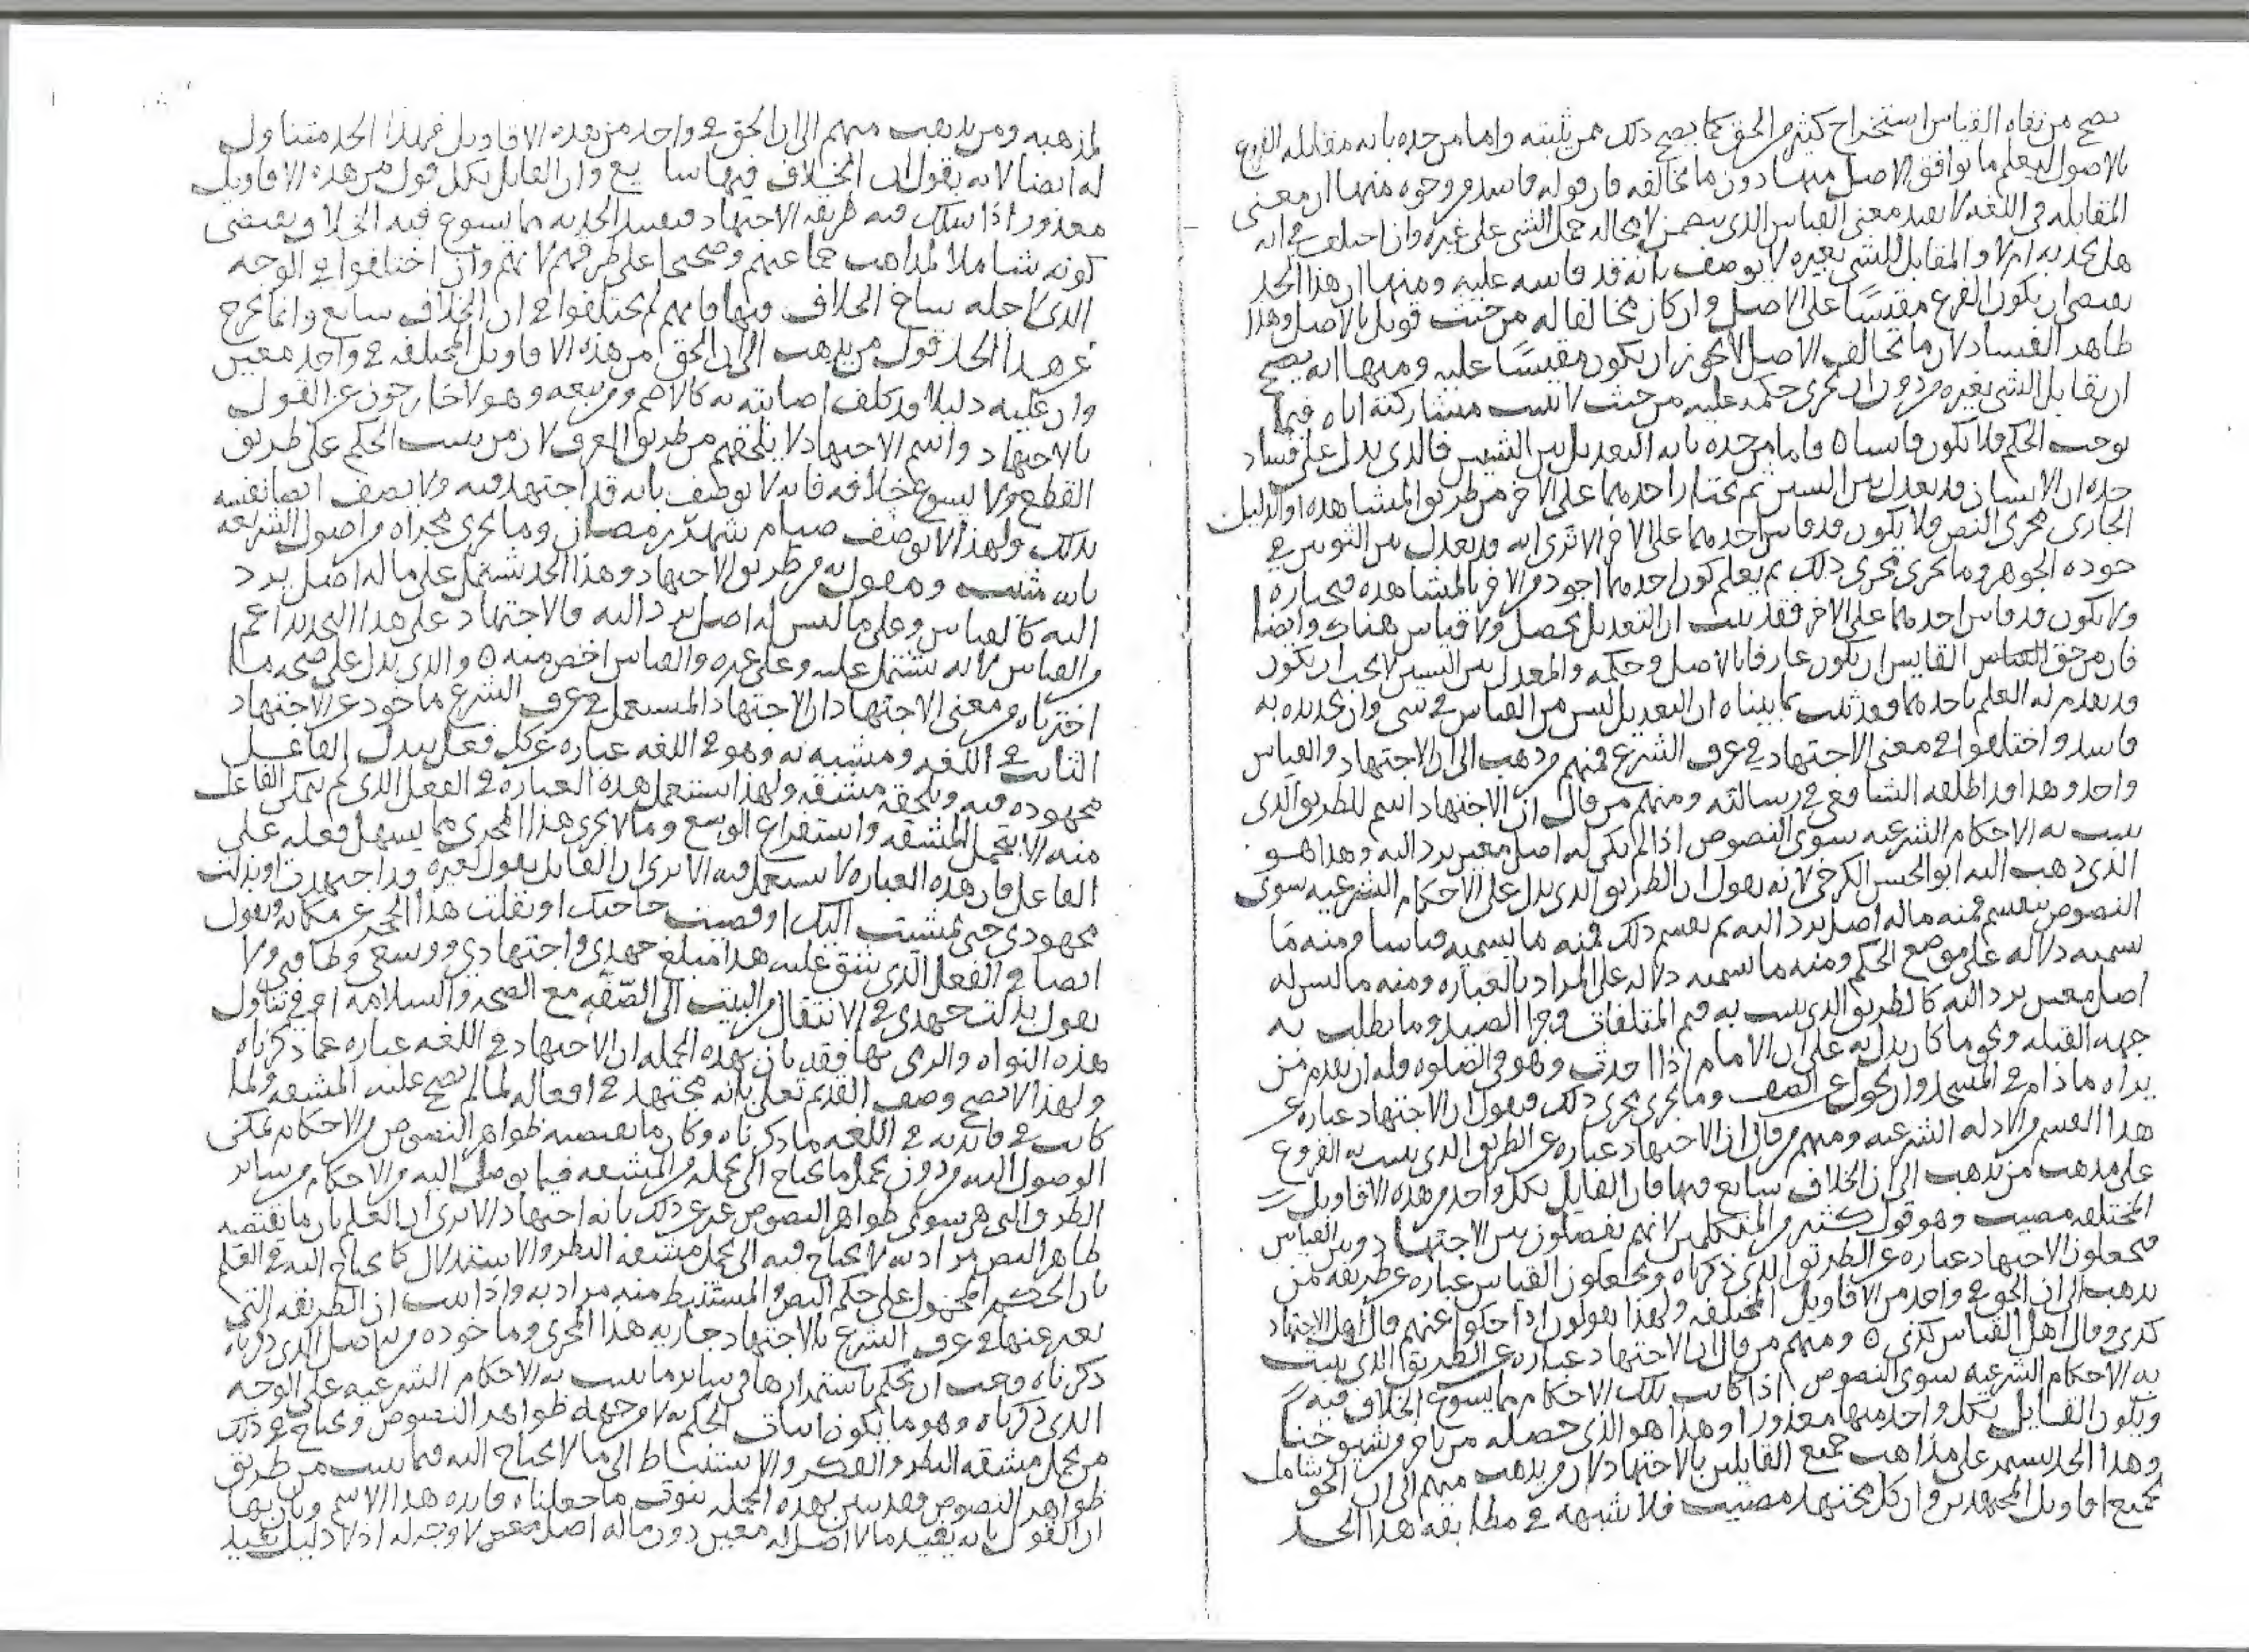 يصح من نفاه القياس استخراج كثير من الحق كما يصح ذلك ممن يثبته واما من حده بانه مقابله الفرع
بالاصول ليعلم ما يوافق الاصل منها دون ما يخالفه فان قوله فاسد من وجوه منها ان معنى
المقابله في اللغه لا يفيد معنى القياس الذي يتضمن لا محاله حمل الشي على غيره وان اختلف في انه
هل يحد به ام لا والمقابل للشي بغيره لا يوصف بانه قد قاسه عليه ومنها ان هذا الحد
يقتضي ان يكون الفرع مقيسًا على الاصل وان كان مخالفا له من حيث قوبل بالاصل وهذا
ظاهر الفساد لان ما يخالف الاصل لا يجوز ان يكون مقيسًا عليه ومنها انه يصح
ان يقابل الشي بغيره من دون ان يجري حكمه عليه من حيث لا يثبت مشاركته اياه فيما
يوجب الحكم فلا يكون قاسا ٥ فاما من حده بانه التعديل بين الشيئين فالذي يدل على فساد
حده ان الانسان قد يعدل بين الشيين ثم يختار احدهما على الاخر من طريق المشاهده او الدليل
الجاري مجرى النص ولا يكون قد قاس احدهما على الاخر الا ترى انه قد يعدل بين الثوبين في
جوده الجوهر وما يجري مجرى ذلك ثم يعلم كون احدهما اجود من الاخر بالمشاهده فيختاره
ولا يكون قد قاس احدهما على الاخر فقد ثبت ان التعديل يحصل ولا قياس هناك وايضا
فان من حق القياس القايس ان يكون عارفا بالاصل وحكمه والمعدل بين الشيين لا يجب ان يكون
قد تقدم له العلم باحدهما وقد ثبت بما بيناه ان التعديل ليس من القياس في شي وان تحديده به
فاسد واختلفوا في معنى الاجتهاد في عرف الشرع فمنهم من ذهب الى ان الاجتهاد والقياس
واحد وهذا قد اطلقه الشافعي في رسالته ومنهم من قال ان الاجتهاد اسم للطريق الذي
يثبت به الاحكام الشرعيه سوى النصوص اذا لم يكن له اصل معين يرد اليه وهذا هو
الذي ذهب اليه ابو الحسن الكرخي لانه يقول ان الطريق الذي يدل على الاحكام الشرعيه سوى
النصوص ينقسم فمنه ما له اصل يرد اليه ثم يقسم ذلك فمنه ما يسميه قياسا ومنه ما
يسميه دلاله على موضع الحكم ومنه ما يسميه دلاله على المراد بالعباره ومنه ما ليس له
اصل معين يرد اليه كالطريق الذي يثبت به قيم المتلفات وجزا الصيد وما يطلب به
جهه القبله ونحو ما كان يدل به على ان الامام اذا احدث وهو في الصلوه فله ان يقدم من
يراه ما دام في المسجد وان يحول عن الصف وما يجري مجرى ذلك فيقول ان الاجتهاد عباره عن
هذا القسم من الادله الشرعيه ومنهم من قال ان الاجتهاد عباره عن الطريق الذي يثبت به الفروع
على مذهب من يذهب الى ان الخلاف سايع فيها فان القايل بكل واحد من هذه الاقاويل
المختلفه مصيب وهو قول كثير من المتكلمين لانهم يفصلون بين الاجتهاد وبين القياس
فيجعلون الاجتهاد عباره عن الطريق الذي ذكرناه ويجعلون القياس عباره عن طريقه من
يذهب الى ان الحق في واحد من الاقاويل المختلفه ولهذا يقولون اذا حكوا عنهم قال اهل الاجتهاد
كذي وقال اهل القياس كذي ٥ ومنهم من قال ان الاجتهاد عباره عن الطريق الذي يثبت
به الاحكام الشرعيه سوى النصوص اذا كانت تلك الاحكام مما يسوع الخلاف فيه
ويكون القايل بكل واحد منها معذورا وهذا هو الذي حصله من شيوخنا
وهذا الحد يستمر على مذاهب جميع القايلين بالاجتهاد لان من يذهب منهم الى ان الحق شامل
لجميع اقاويل المجتهدين وان كل مجتهد مصيب فلا شبهه في مطابقه هذا الحد
لمذهبه ومن يذهب منهم الى ان الحق في واحد من هذه الاقاويل فهذا الحد متناول
له ايضا لانه يقول ان الخلاف فيها سايع وان القايل بكل قول من هذه الاقاويل
معذور اذا سلك فيه طريقه الاجتهاد فتقييد الحد به مما يسوع فيه الخلاف يقتضي
كونه شاملا لمذاهب جماعتهم وصحيحا على طرقهم لانهم وان اختلفوا في الوجه
الذي لاجله ساغ الخلاف فيها فانهم لم يختلفوا في ان الخلاف سايع وانما يخرج
عن هذا الحد قول من يذهب الى ان الحق من هذه الاقاويل المختلفه في واحد معين
وان عليه دليلا قد كلف اصابته به كالاصم ومن تبعه وهولا خارجون عن القول
بالاجتهاد واسم الاجتهاد لا يلحقهم من طريق العرف لان من يثبت الحكم على طريق
القطع ولا يسوع خلافه فانه لا يوصف بانه قد اجتهد فيه ولا يصف ايضا نفسه
بذلك ولهذا لا يوصف صيام شهر رمضان وما يجري مجراه من اصول الشريعه
بانه مثبت ومعمول به من طريق الاجتهاد وهذا الحد يشتمل على ما له اصل يرد
اليه كالقياس وعلى ما ليس له اصل يرد اليه فالاجتهاد على هذا التحديد اعم
من القياس لانه يشتمل عليه وعلى غيره والقياس اخص منه ٥ والذي يدل على صحه ما
اخترناه من معنى الاجتهاد ان الاجتهاد المستعمل في عرف الشرع ماخوذ عن الاجتهاد
الثابت في اللغه ومشبه به وهو في اللغه عباره عن كل فعل يبذل الفاعل
مجهوده فيه ويلحقه مشقه ولهذا تستعمل هذه العباره في الفعل الذي لم يتمكن الفاعل
منه الا بتحمل المشقه واستفراغ الوسع وما لا يجري هذا المجرى مما يسهل فعله على
الفاعل فان هذه العباره لا تستعمل فيه الا ترى ان القايل يقول لغيره قد اجتهدت او بذلت
مجهودي حتى مشيت اليك او قضيت حاجتك او نقلت هذا الحجر عن مكانه ويقول
ايضا في الفعل الذي يشق عليه هذا مبلغ جهدي واجتهادي ووسعي وطاقتي ولا
يقول بذلت جهدي في الانتقال من البيت الى الصّفّه مع الصحه والسلامه او في تناول
هذه النواه والرمي بها فقد بان بهذه الجمله ان الاجتهاد في اللغه عباره عما ذكرناه
ولهذا لا يصح وصف القديم تعلى بانه مجتهد في افعاله لما لم تصح عليه المشقه ولما
كانت فايدته في اللغه ما ذكرناه وكان ما يقتضيه ظواهر النصوص من الاحكام يمكن
الوصول اليه من دون تحمل ما يحتاج الى تحمله من المشقه فيما يوصل اليه من الاحكام من ساير
الطرق التي هي سوى ظواهر النصوص عبر عن ذلك بانه اجتهاد الا ترى ان العلم بان ما يقتضيه
ظاهر النص مراد به لا يحتاج فيه الى تحمل مشقه النظر والاستدلال كما يحتاج اليه في العلم
بان الحكم المحمول على حكم النص والمستنبط منه مراد به واذا ثبت ان الطريقه التي
يعبر عنها في عرف الشرع بالاجتهاد جاريه هذا المجرى وماخوذه من الاصل الذي ذكرناه
ذكرناه وجب ان يحكم باستمرارها في ساير ما يثبت به الاحكام الشرعيه على الوجه
الذي ذكرناه وهو ما يكون اثبات الحكم به لا من جهه ظواهر النصوص ويحتاج في ذلك
من تحمل مشقه النظر والفكر والاستنباط الى ما لا يحتاج اليه فيما يثبت من طريق
ظواهر النصوص فقد تبين بهذه الجمله ثبوت ما جعلناه فايده هذا الاسم وبان بها
ان القول بانه يفيد ما لا اصل له معين دون ما له اصل معين لا وجه له اذ لا دليل يفيد